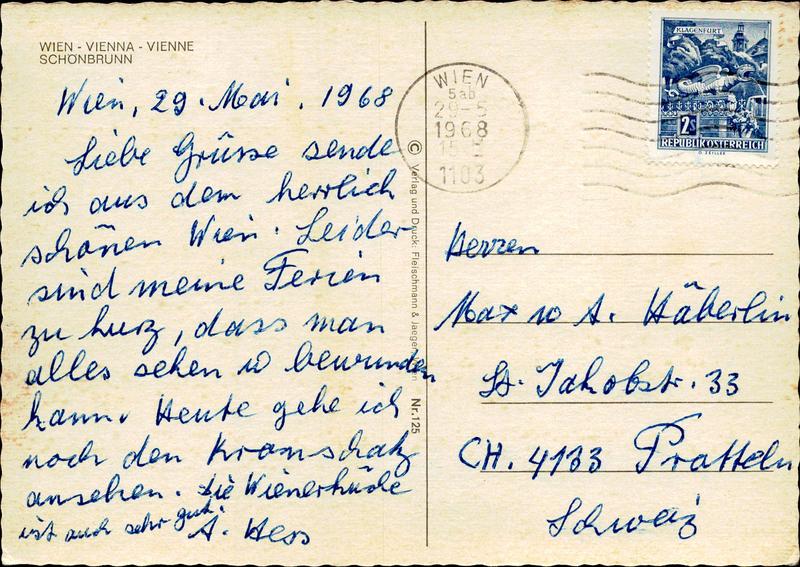 WIEN - VIENNA - VIENNE
SCHÖNBRUNN
Wien, 29. Mai. 1968
Liebe Grüsse sende
ich aus dem herrlich
schönen Wien. Leider
sind meine Ferien
zu kurz, dass man
alles sehen u bewundern
kann. Heute gehe ich
noch den Kronschatz
ansehen. Die Wienerküche
ist auch sehr gut.
A. Hess
© Verlag und Druck: Fleischmann & Jaeger
Nr. 125
WIEN
5ab
29-5
1968
15
1103
KLAGENFURT
2S
REPUBLIK ÖSTERREICH
Herren
Max u A. Häberlin
St. Jakobstr. 33
CH. 4133 Pratteln
Schweiz